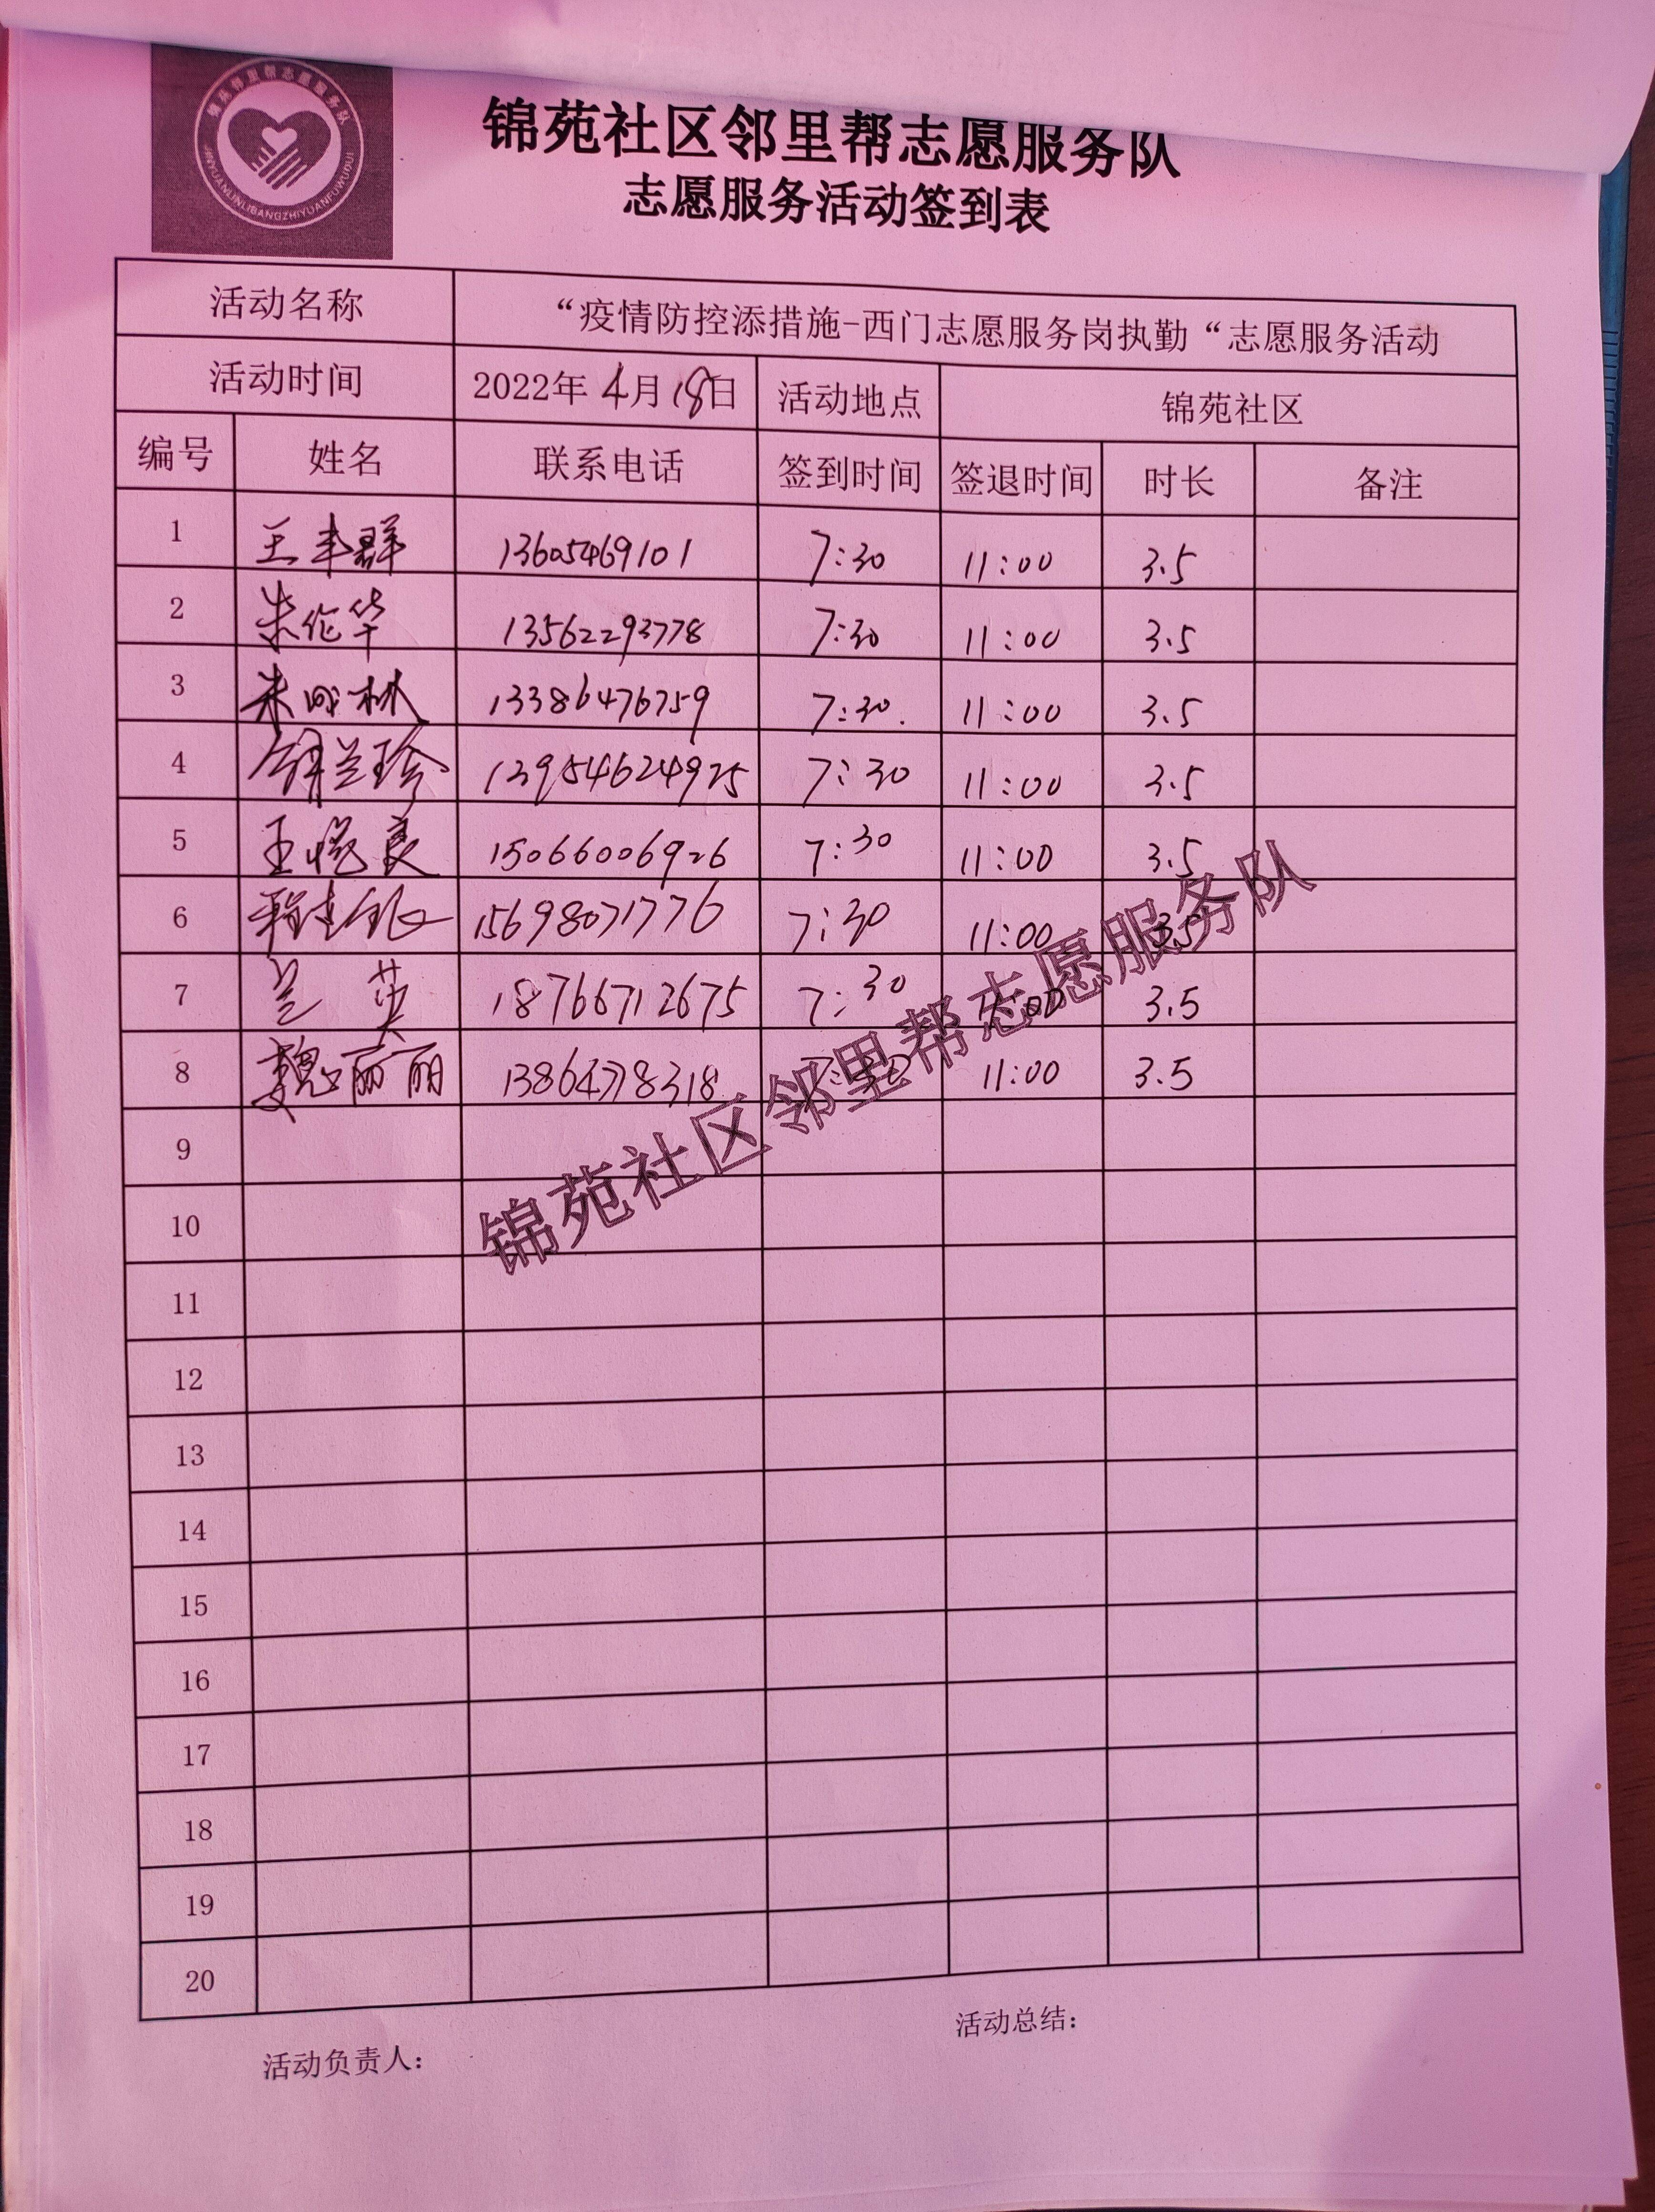 锦苑邻里帮志愿服务队
JINYUANLINLIBANGZHIYUANFUWUDUI
锦苑社区邻里帮志愿服务队
志愿服务活动签到表
活动名称 “疫情防控添措施-西门志愿服务岗执勤“志愿服务活动
活动时间 2022年4月18日 活动地点 锦苑社区
编号 姓名 联系电话 签到时间 签退时间 时长 备注
1 王丰群 13605469101 7:30 11:00 3.5
2 朱作华 13562293778 7:30 11:00 3.5
3 朱成林 13386476759 7:30 11:00 3.5
4 兰珍 13954624925 7:30 11:00 3.5
5 王 良 15066006926 7:30 11:00 3.5
6 15698071776 7:30 11:00 3.5
7 兰英 18766712675 7:30 11:00 3.5
8 魏丽丽 13864778318 7:30 11:00 3.5
锦苑社区邻里帮志愿服务队
9
10
11
12
13
14
15
16
17
18
19
20
活动负责人：
活动总结：